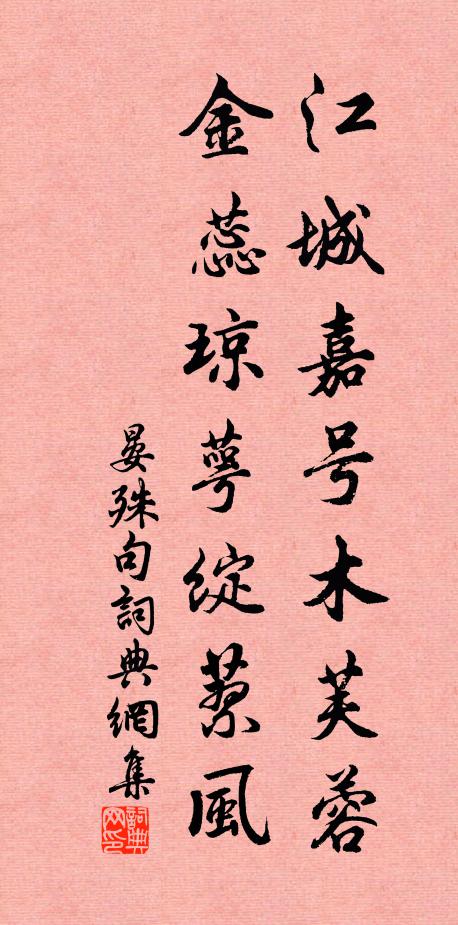 江城嘉号木芙蓉
金蕊琼萼绽風
晏殊句詞典網集
詞典
网印